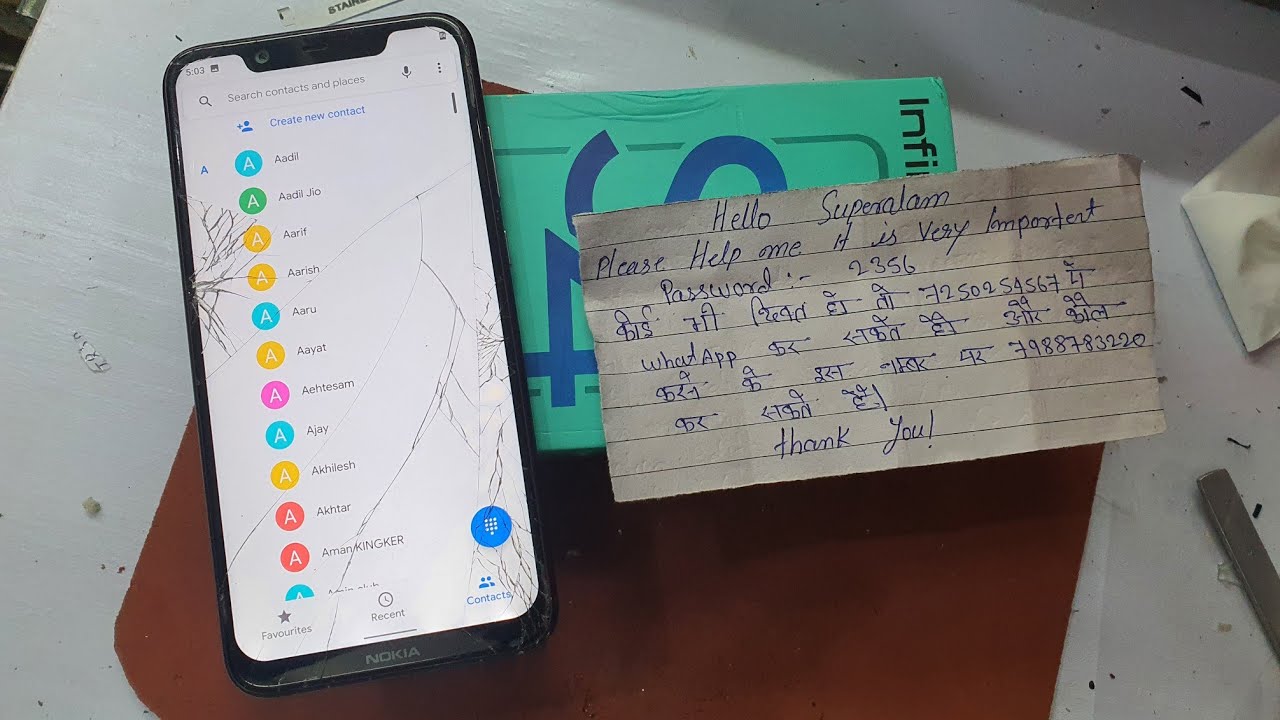 STAINL
5:03
Search contacts and places
Create new contact
A
A Aadil
A Aadil Jio
A Aarif
A Aarish
A Aaru
A Aayat
A Aehtesam
A Ajay
A Akhilesh
A Akhtar
A Aman KINGKER
Favourites
Recent
Contacts
NOKIA
Infi
Hello Superalam
Please Help me it is Very Importent
Password:- 2356
कोई भी दिक्त हो तो 7250254567 पे
whatApp कर सकते है और कॉल
करने के इस नम्बर पर 7988783220
कर सकते है।
thank You!